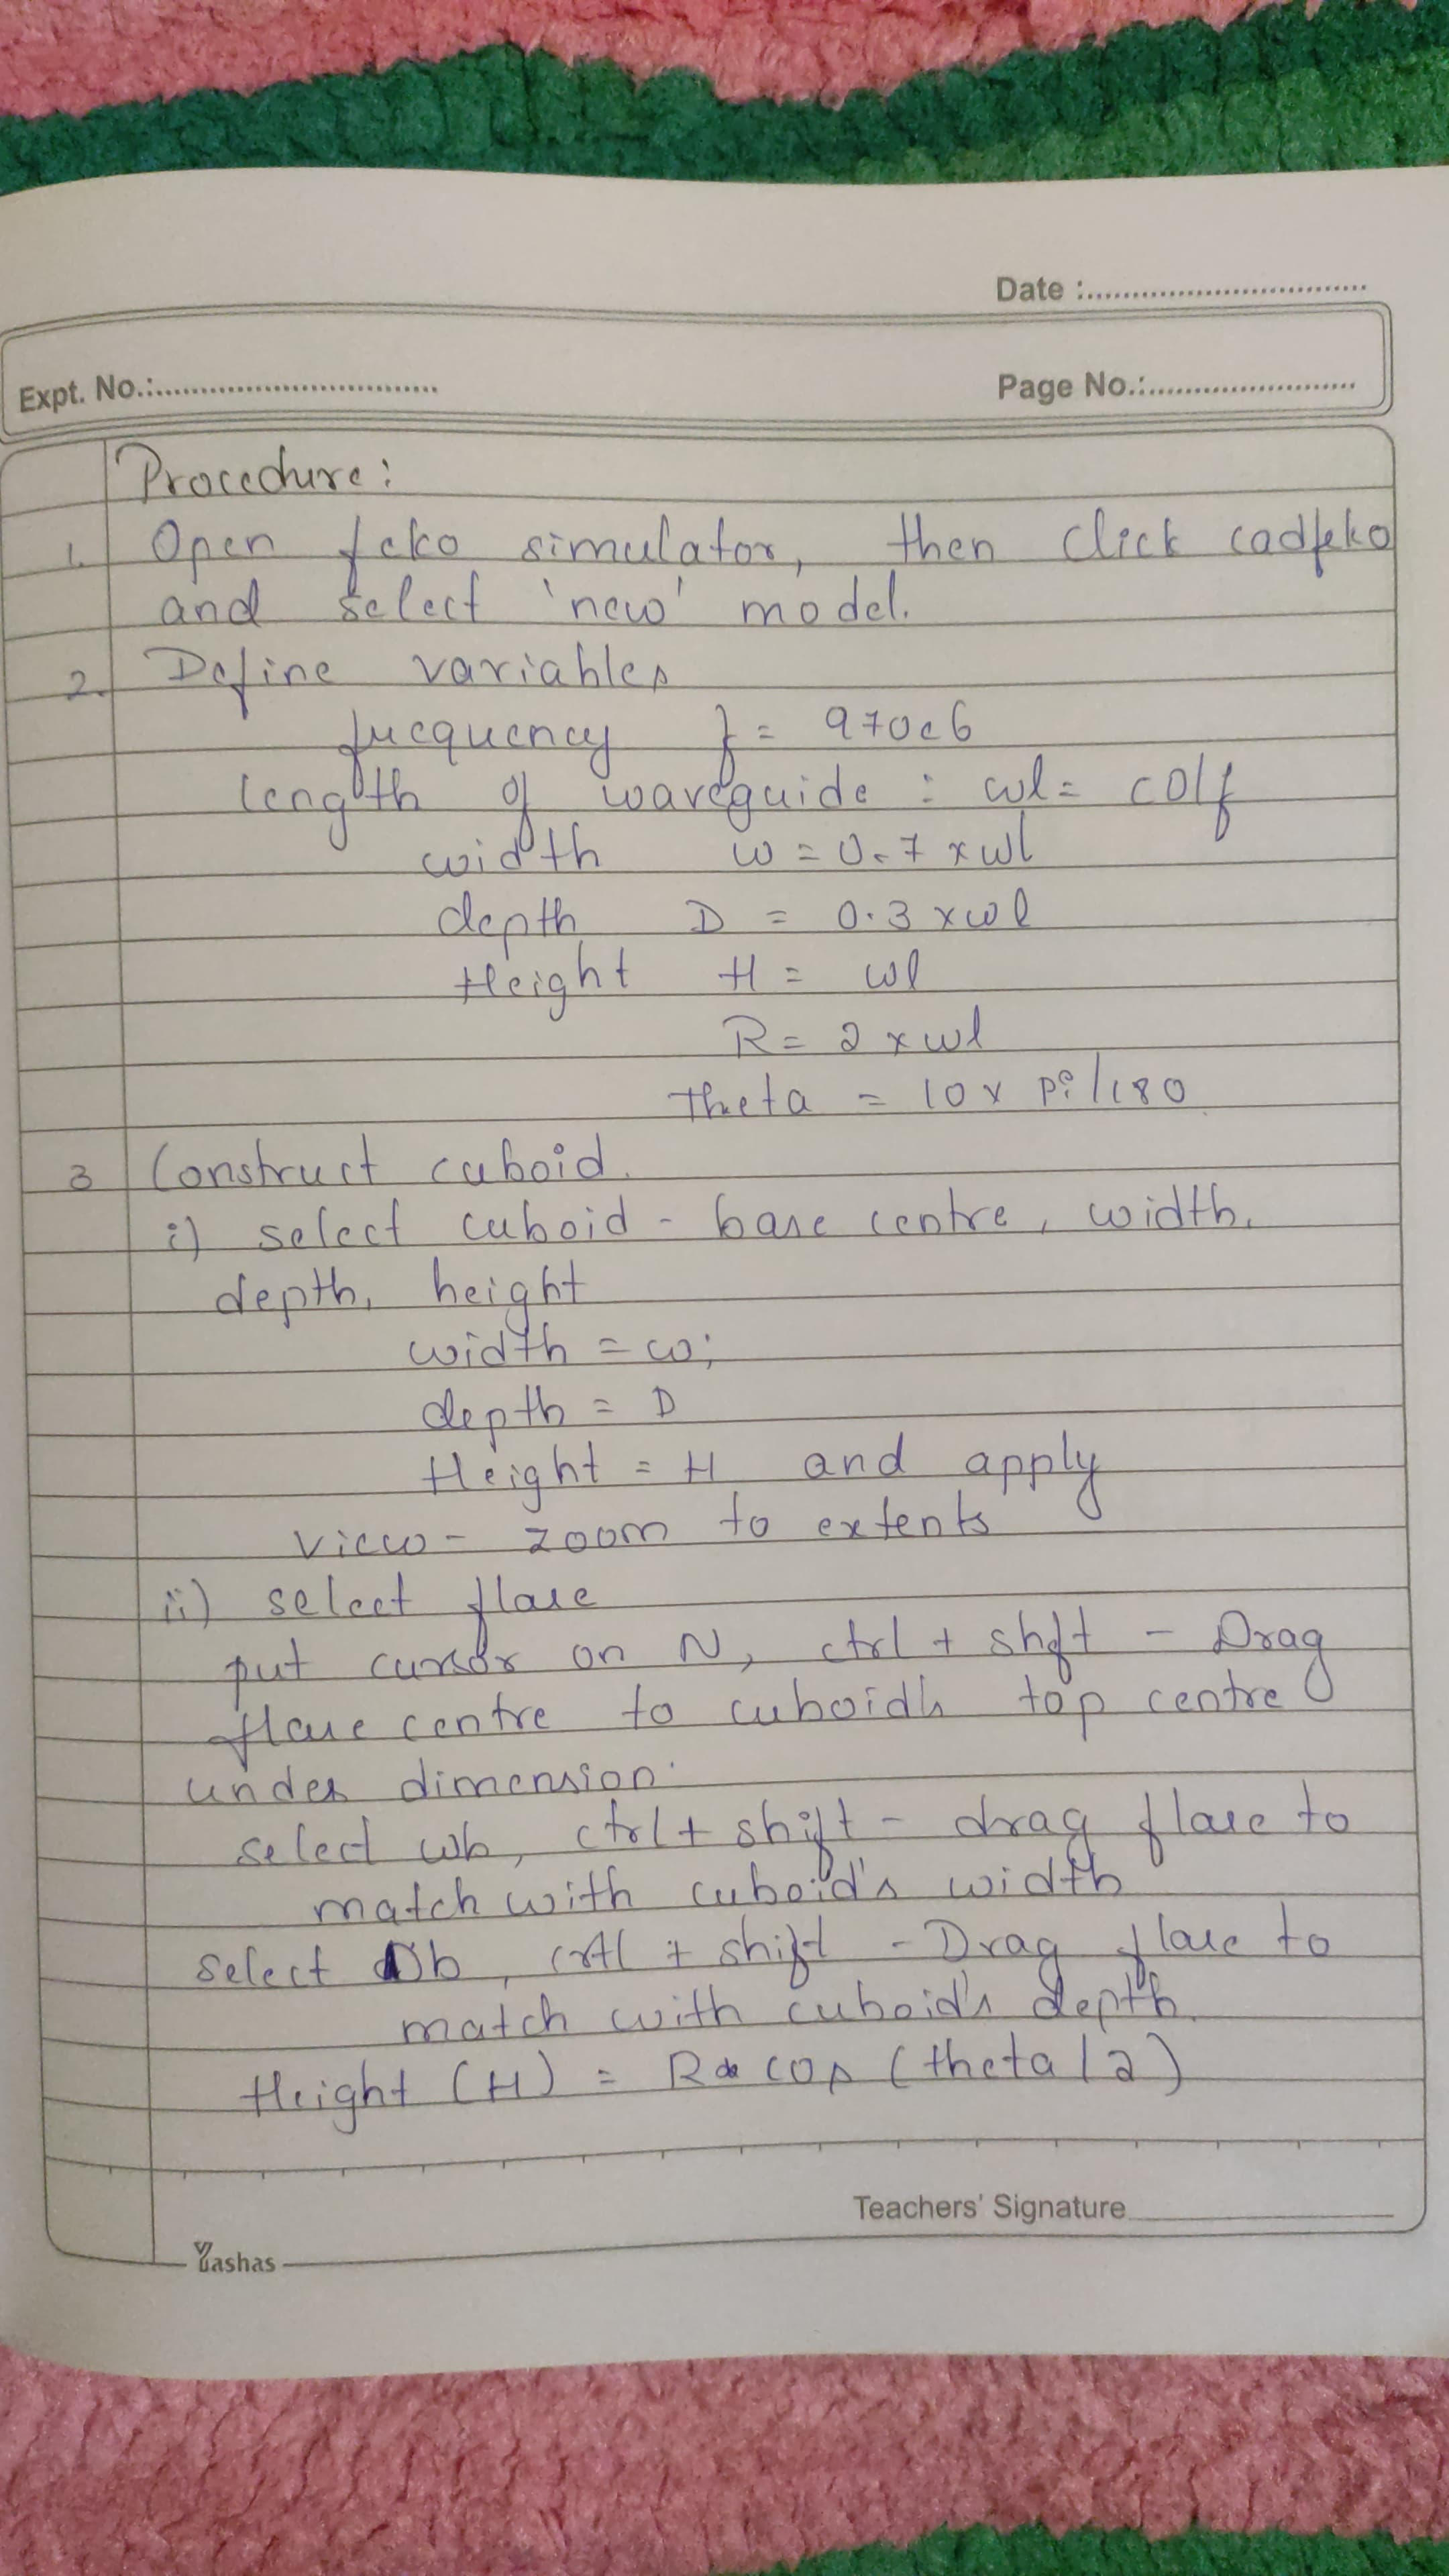 Date :
Expt. No.:
Page No.:
Procedure:
1. Open feko simulator, then click cadfeko
and select 'new' model.
2. Define variables
frequency f = 970e6
length of waveguide : wl = c0/f
width w = 0.7 x wl
depth D = 0.3 x wl
Height H = wl
R = 2 x wl
Theta = 10 x pi/180
3 Construct cuboid.
i) select cuboid - base centre, width,
depth, height
width = w;
depth = D
Height = H and apply
view - zoom to extents
ii) select flare
put cursor on N, ctrl + shift - Drag
flare centre to cuboid's top centre
under dimension.
select wb, ctrl + shift - drag flare to
match with cuboid's width
select Db, ctrl + shift - Drag flare to
match with cuboid's depth.
Height (H) = R * cos (theta/2)
Teachers' Signature
Yashas